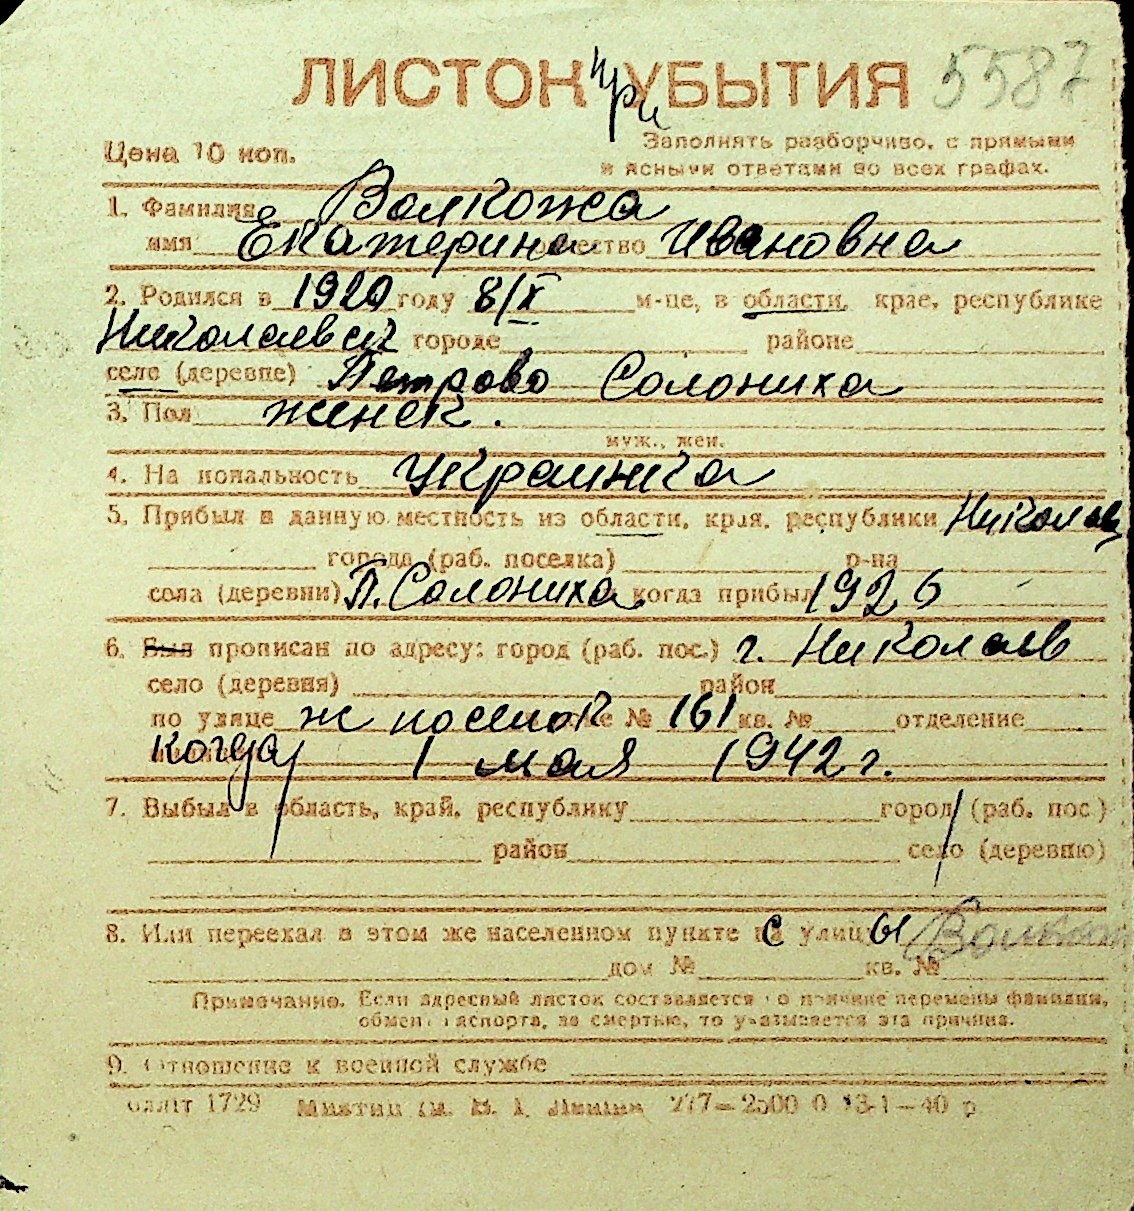 ЛИСТОК при УБЫТИЯ 5587
Цена 10 коп. Заполнять разборчиво, с прямыми
и ясными ответами во всех графах.
1. Фамилия Волкожа
имя Екатерина отчество Ивановна
2. Родился в 1920 году 8/X м-це, в области, крае, республике
Николаевск городе районе
село (деревне) Петрово Солониха
3. Пол женск.
муж., жен.
4. Национальность украинка
5. Прибыл в данную местность из области, края, республики Николаев
города (раб. поселка) р-на
села (деревни) П. Солониха когда прибыл 1926
6. Был прописан по адресу: город (раб. пос.) г. Николаев
село (деревня) район
по улице ж поселок № 161 кв. № отделение
когда 1 мая 1942 г.
7. Выбыл в область, край, республику город (раб. пос)
район село (деревню)
8. Или переехал в этом же населенном пункте с улицы
дом № кв. №
Примечание. Если адресный листок составляется по причине перемены фамилии,
обмена паспорта, за смертью, то указывается эта причина.
9. Отношение к военной службе
1729 277—2500 0 13-1—40 р